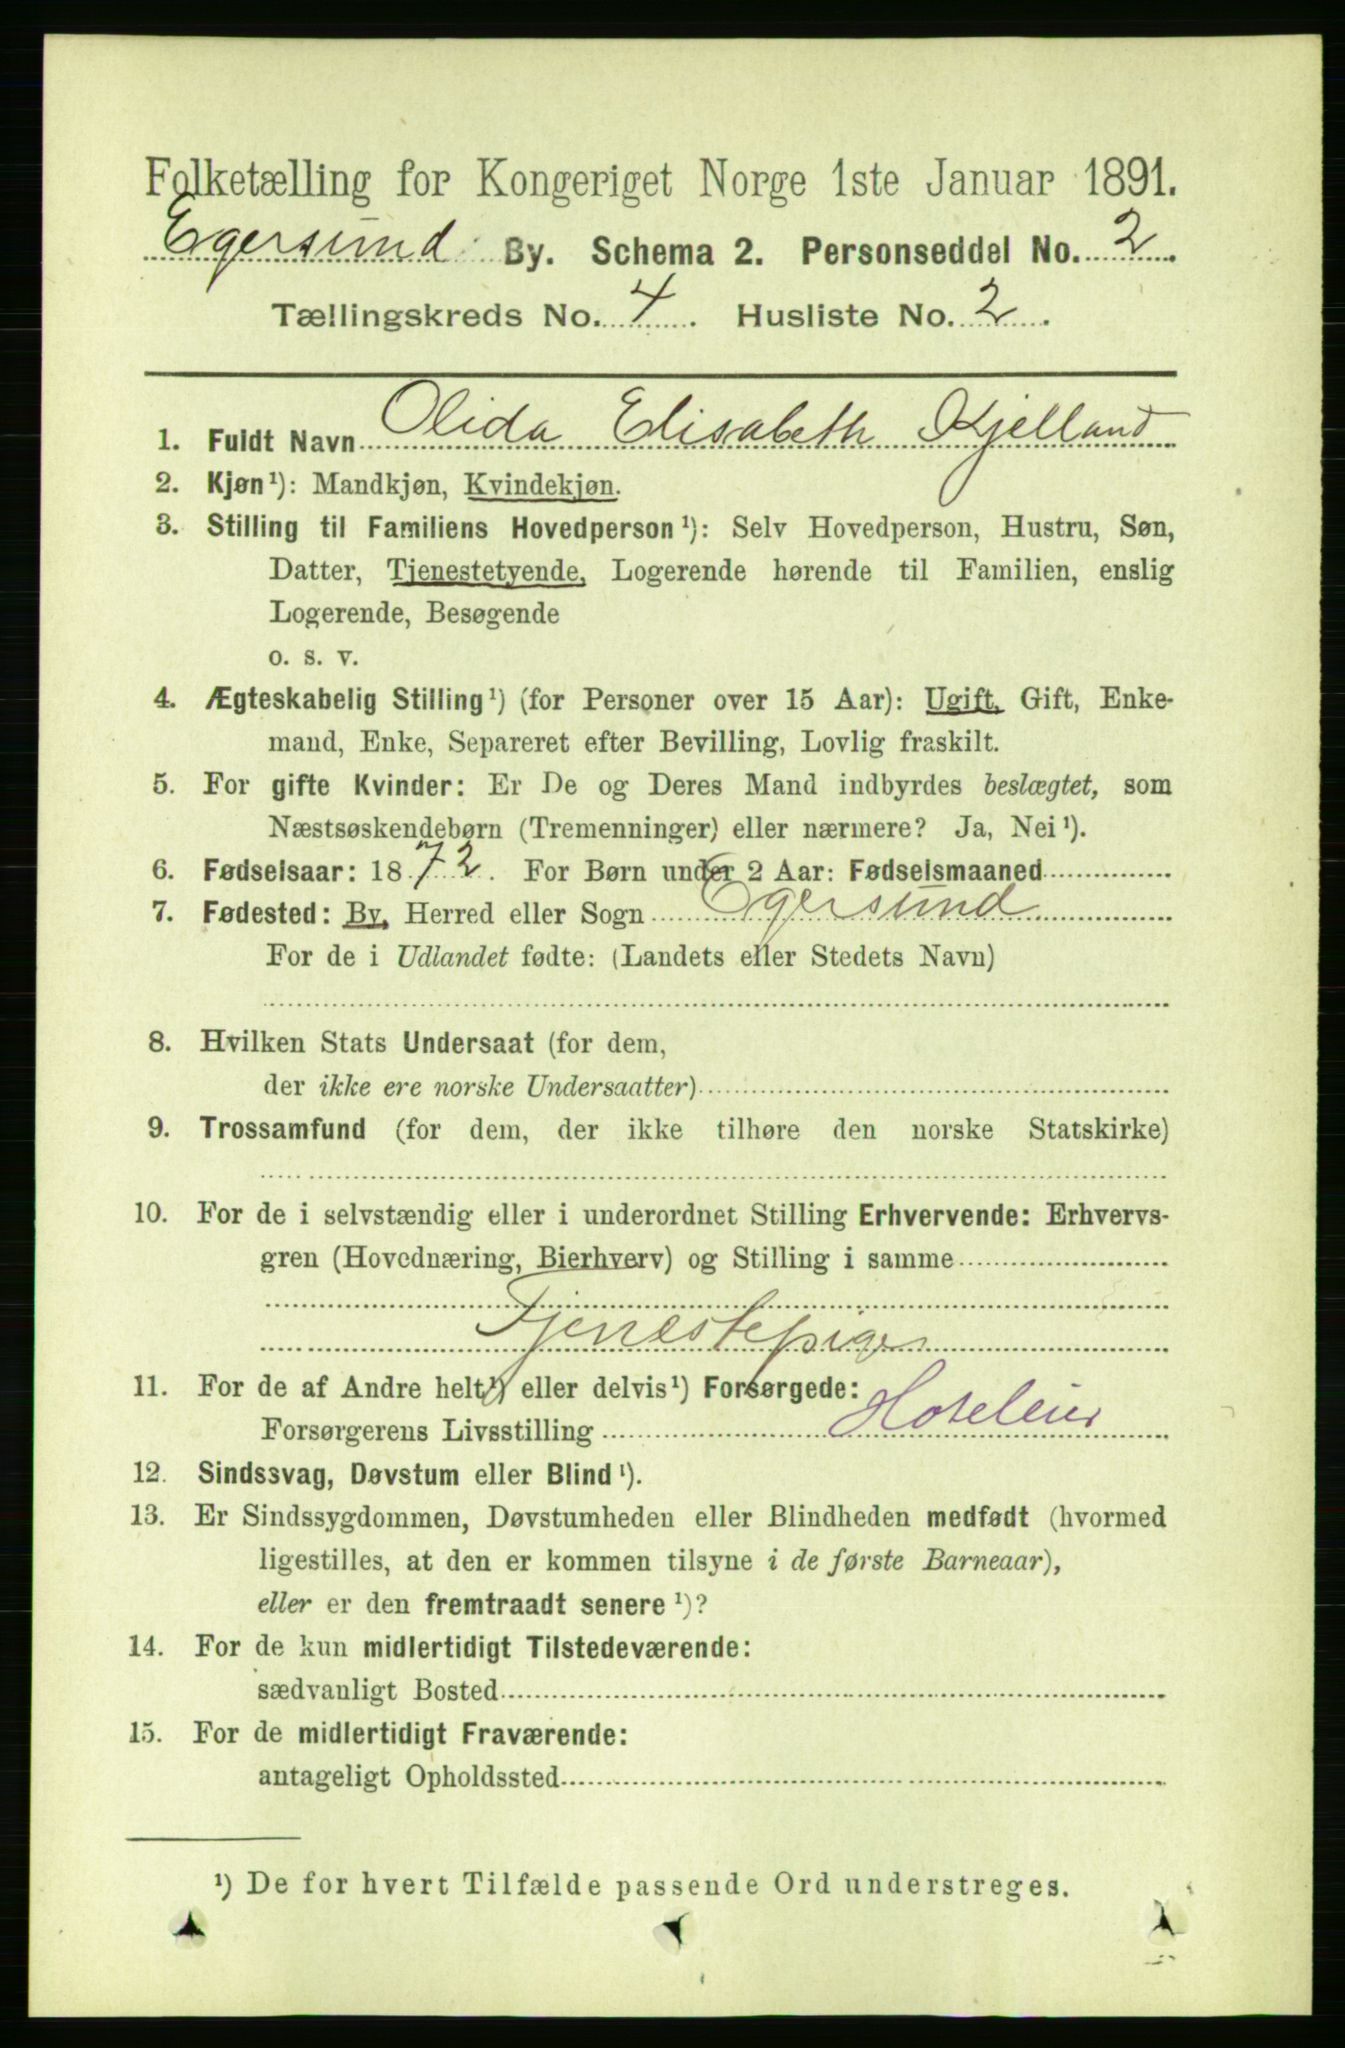 Folketælling for Kongeriget Norge 1ste Januar 1891.
Egersund By. Schema 2. Personseddel No. 2.
Tællingskreds No. 4. Husliste No. 2.
1. Fuldt Navn Olida Elisabeth Kjelland
2. Kjøn¹): Mandkjøn, Kvindekjøn.
3. Stilling til Familiens Hovedperson¹): Selv Hovedperson, Hustru, Søn,
Datter, Tjenestetyende, Logerende hørende til Familien, enslig
Logerende, Besøgende
o. s. v.
4. Ægteskabelig Stilling¹) (for Personer over 15 Aar): Ugift, Gift, Enke-
mand, Enke, Separeret efter Bevilling, Lovlig fraskilt.
5. For gifte Kvinder: Er De og Deres Mand indbyrdes beslægtet, som
Næstsøskendebørn (Tremenninger) eller nærmere? Ja, Nei¹).
6. Fødselsaar: 1872. For Børn under 2 Aar: Fødselsmaaned
7. Fødested: By, Herred eller Sogn Egersund
For de i Udlandet fødte: (Landets eller Stedets Navn)
8. Hvilken Stats Undersaat (for dem,
der ikke ere norske Undersaatter)
9. Trossamfund (for dem, der ikke tilhøre den norske Statskirke)
10. For de i selvstændig eller i underordnet Stilling Erhvervende: Erhvervs-
gren (Hovednæring, Bierhverv) og Stilling i samme
Tjenestepige
11. For de af Andre helt¹) eller delvis¹) Forsørgede:
Forsørgerens Livsstilling Hoteleier
12. Sindssvag, Døvstum eller Blind¹).
13. Er Sindssygdommen, Døvstumheden eller Blindheden medfødt (hvormed
ligestilles, at den er kommen tilsyne i de første Barneaar),
eller er den fremtraadt senere¹)?
14. For de kun midlertidigt Tilstedeværende:
sædvanligt Bosted
15. For de midlertidigt Fraværende:
antageligt Opholdssted
¹) De for hvert Tilfælde passende Ord understreges.